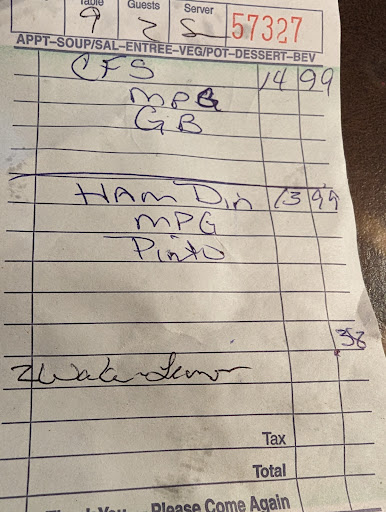 Table Guests Server
9 2 S 57327
APPT-SOUP/SAL-ENTREE-VEG/POT-DESSERT-BEV
CFS 14 99
MPG
GB
HAM Din 13 99
MPG
Pinto
38
2 Water Lemon
Tax
Total
Thank You Please Come Again